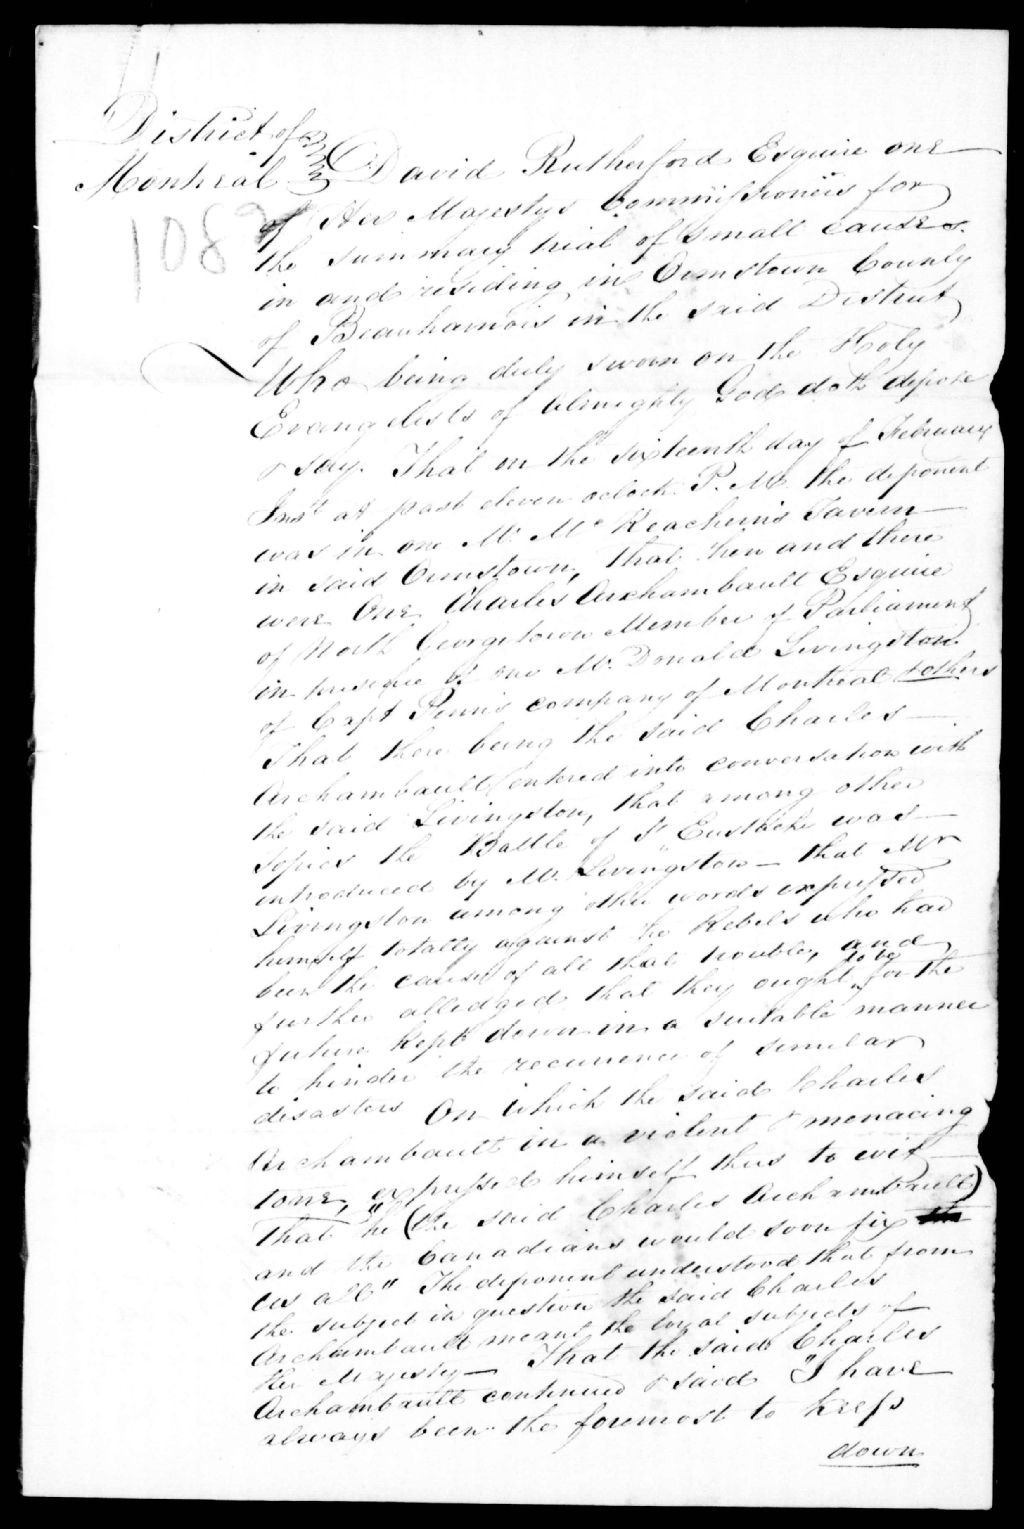 District of
Montreal
108
David Rutherford Esquire one
of Her Majestys Commissioners for
the summary trial of small causes
in and residing in Ormstown County
of Beauharnois in the said District
Who being duly sworn on the Holy
Evangelists of Almighty God doth depose
& say. That on the sixteenth day of February
Inst at past eleven oclock P.M. the deponent
was in one Mr. McEachern's Tavern
in said Ormstown, that then and there
were One Charles Archambault Esquire
of North Georgetown Member of Parliament
in presence of one Mr. Donald Livingston
of Capt Penn's company of Montreal & others
That there being the said Charles
Archambault entered into conversation with
the said Livingston, that among other
topics the Battle of St Eustache was
introduced by Mr. Livingston — that Mr
Livingston among other words expressed
himself totally against the Rebels who had
been the cause of all that trouble, and
further alledged that they ought to be for the
future kept down in a suitable manner
to hinder the recurrence of similar
disasters On which the said Charles
Archambault in a violent & menacing
tone, expressed himself thus to wit
That "he (the said Charles Archambault)
and the Canadians would soon fix
us all" The deponent understood that from
the subject in question the said Charles
Archambault meant the loyal subjects of
Her Majesty — That the said Charles
Archambault continued & said "I have
always been the foremost to keep
down